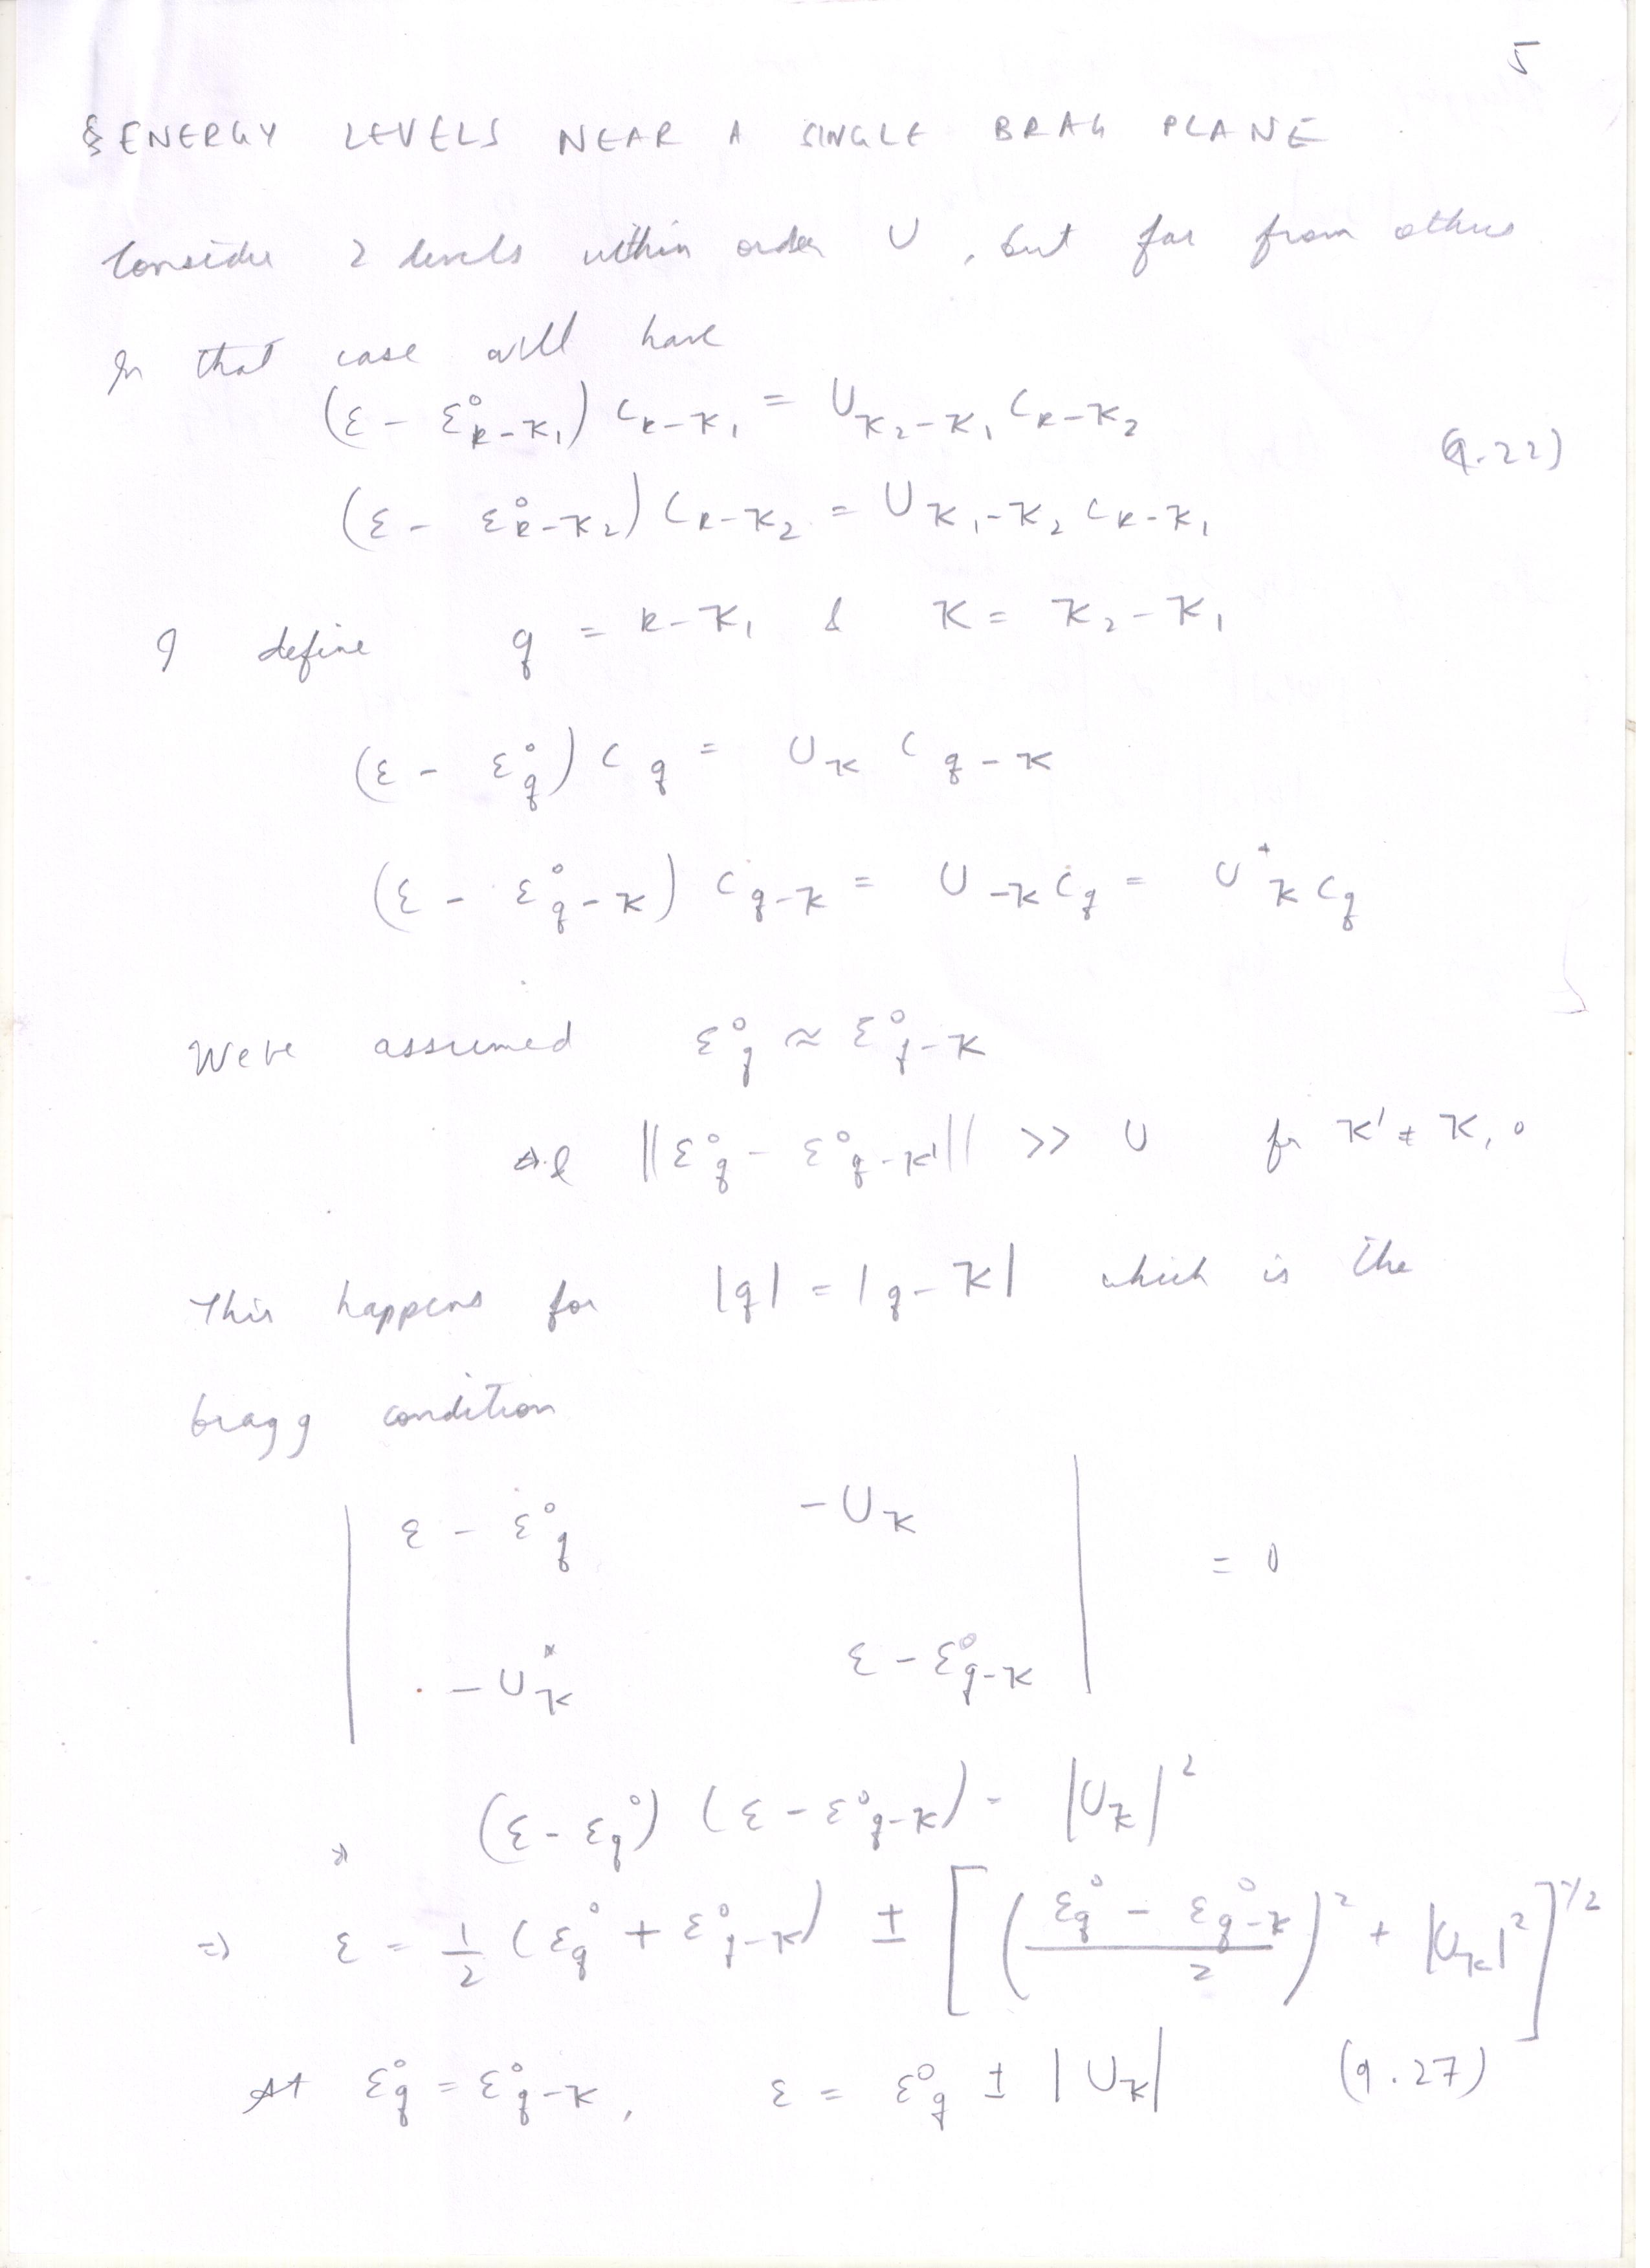 5
§ ENERGY LEVELS NEAR A SINGLE BRAG PLANE
Consider 2 levels within order U, but far from others
In that case will have
(ε - ε°_{k-K₁}) c_{k-K₁} = U_{K₂-K₁} c_{k-K₂}
(9.22)
(ε - ε°_{k-K₂}) c_{k-K₂} = U_{K₁-K₂} c_{k-K₁}
I define q = k-K₁ & K = K₂-K₁
(ε - ε°_q) c_q = U_K c_{q-K}
(ε - ε°_{q-K}) c_{q-K} = U_{-K} c_q = U*_K c_q
We've assumed ε°_q ≈ ε°_{q-K}
||ε°_q - ε°_{q-K'}|| >> U for K' ≠ K, 0
This happens for |q| = |q-K| which is the
bragg condition
| ε - ε°_q   -U_K |
= 0
| -U*_K   ε - ε°_{q-K} |
(ε - ε_q°) (ε - ε°_{q-K}) = |U_K|²
⇒ ε = 1/2 (ε_q° + ε°_{q-K}) ± [((ε_q° - ε°_{q-K})/2)² + |U_K|²]^{1/2}
At ε°_q = ε°_{q-K}, ε = ε°_q ± |U_K| (9.27)